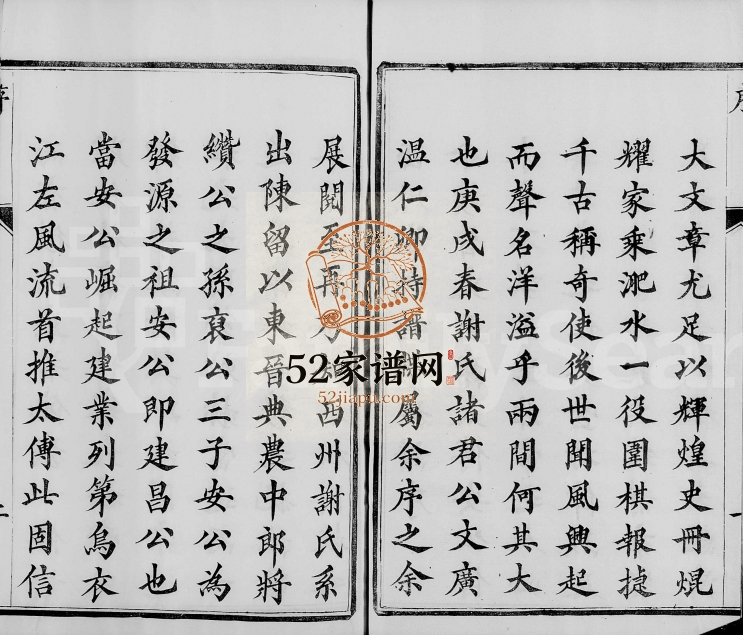 序
大文章尤足以輝煌史冊焜
耀家乘淝水一役圍棋報捷
千古稱奇使後世聞風興起
而聲名洋溢乎兩間何其大
也庚戌春謝氏諸君公文廣
温仁卿持譜
屬余序之余
一
展閱至再乃
西州謝氏系
出陳留以東晉典農中郎將
纘公之孫裒公三子安公為
發源之祖安公即建昌公也
當安公崛起建業列第烏衣
江左風流首推太傅此固信
序
二
52家谱网
52jiapu.com